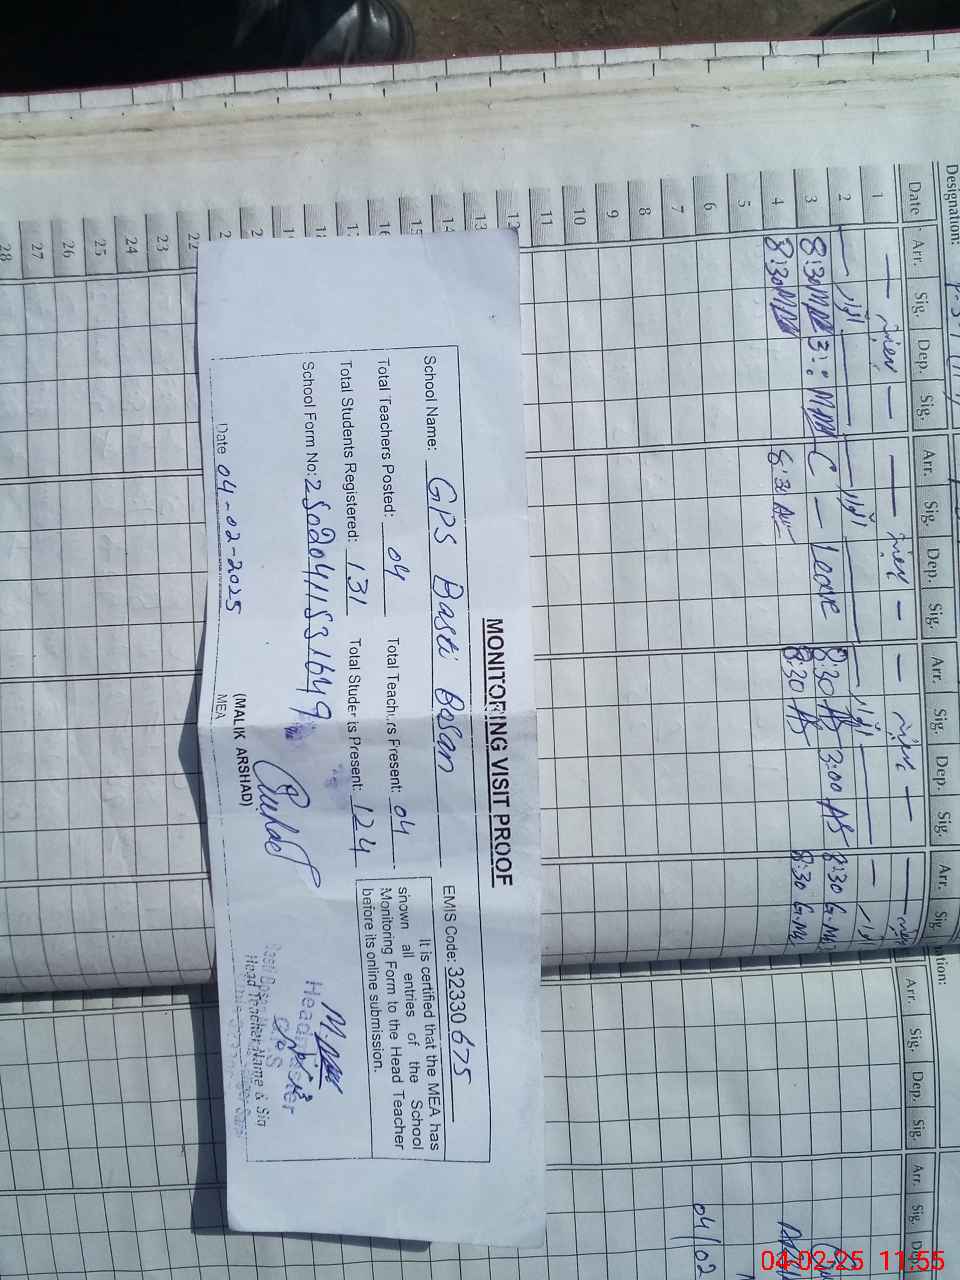 MONITORING VISIT PROOF
School Name: GPS Basti Bosan EMIS Code: 32330675
Total Teachers Posted: 04 Total Teachers Present: 04
Total Students Registered: 131 Total Students Present: 124
School Form No: 25020411531649
It is certified that the MEA has
shown all entries of the School
Monitoring Form to the Head Teacher
before its online submission.
Date 04-02-2025
(MALIK ARSHAD)
MEA
Head Teacher Name & Sig
Designation:
Date Arr. Sig. Dep. Sig. Arr. Sig. Dep. Sig. Arr. Sig. Dep. Sig. Arr. Sig.
1
2 اتوار اتوار اتوار
3 8:30 C – Leave 8:30 AS 3:00 AS 8:30 G.M
4 8:30 8:30 AS 8:30 G.M
5
6
7
8
9
10
11
12
13
14
15
16
22
23
24
25
26
27
28
Arr. Sig. Dep. Sig. Arr. Sig.
04/02
04-02-25 11:55